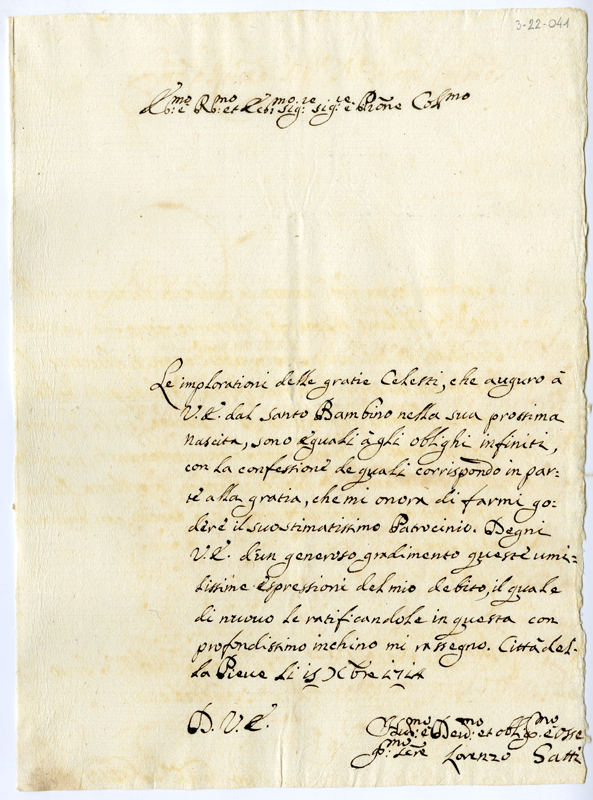 3-22-041
Ill.mo e R.mo et Ecc.mo Sig.re Sig.re e Prone Col.mo
Le implorationi delle gratie Celesti, che auguro à
V.E. dal Santo Bambino nella sua prossima
nascita, sono eguali à gli oblighi infiniti,
con la confessione de quali corrispondo in par=
te alla gratia, che mi onora di farmi go=
dere il suo stimatissimo Patrocinio. Degni
V.E. d'un generoso gradimento queste umi=
lissime espressioni del mio debito, il quale
di nuovo le ratificandole in questa con
profondissimo inchino mi rassegno. Città del=
la Pieve li 15 Xbre 1714
D. V. E.
Hu.mo e Dev.mo et obl.mo e osse
Lorenzo Gatti